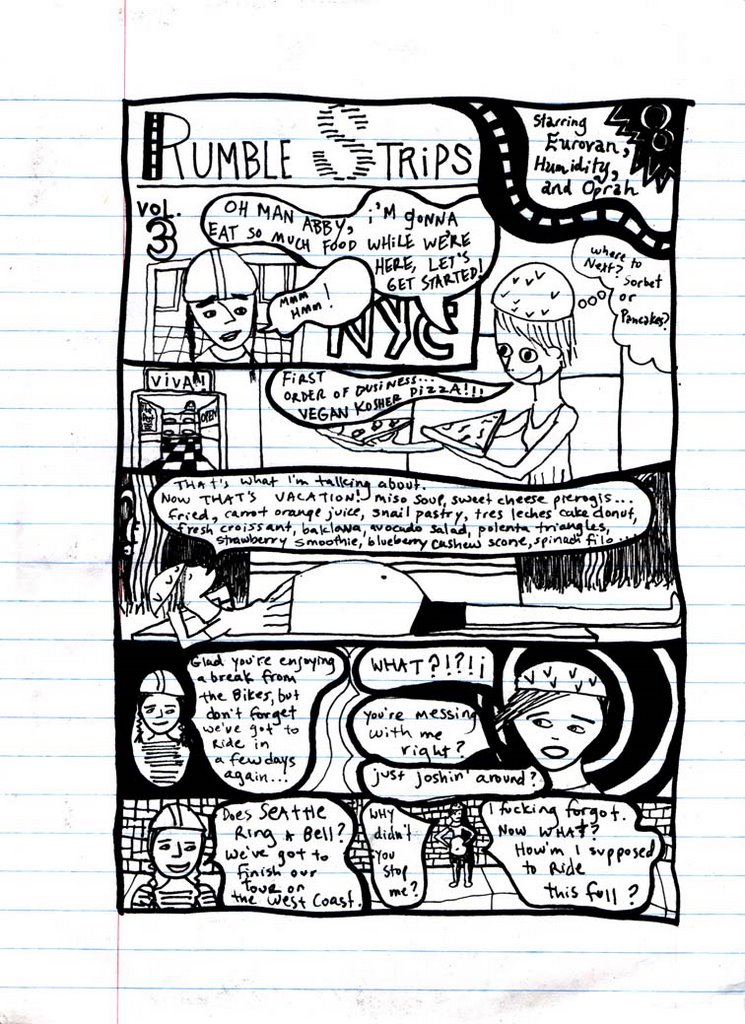 RUMBLE STRIPS
Starring
Eurovan,
Humidity,
and Oprah
8
VOL.
3
OH MAN ABBY, i'M GONNA
EAT SO MUCH FOOD WHILE WE'RE
HERE, LET'S
GET STARTED!
MMM
HMM!
NYC
Where to
Next?
Sorbet
or
Pancakes?
VIVA
OPEN
FIRST
ORDER OF BUSINESS...
VEGAN KOSHER PIZZA!!!
THAT'S what I'm talking about.
NOW THAT'S VACATION! miso soup, sweet cheese pierogis...
fried, carrot orange juice, snail pastry, tres leches cake donut,
fresh croissant, baklava, avocado salad, polenta triangles,
strawberry smoothie, blueberry cashew scone, spinach filo...
Glad you're enjoying
a break from
the Bikes, but
don't forget
we've got to
Ride in
a few days
again...
WHAT?!?!¡
you're messing
with me
right?
just joshin' around?
Does SEATTLE
Ring A Bell?
We've got to
finish our
tour on
the West Coast.
WHY
didn't
you
stop
me?
I fucking forgot.
Now WHAT?
How'm I supposed
to Ride
this full?